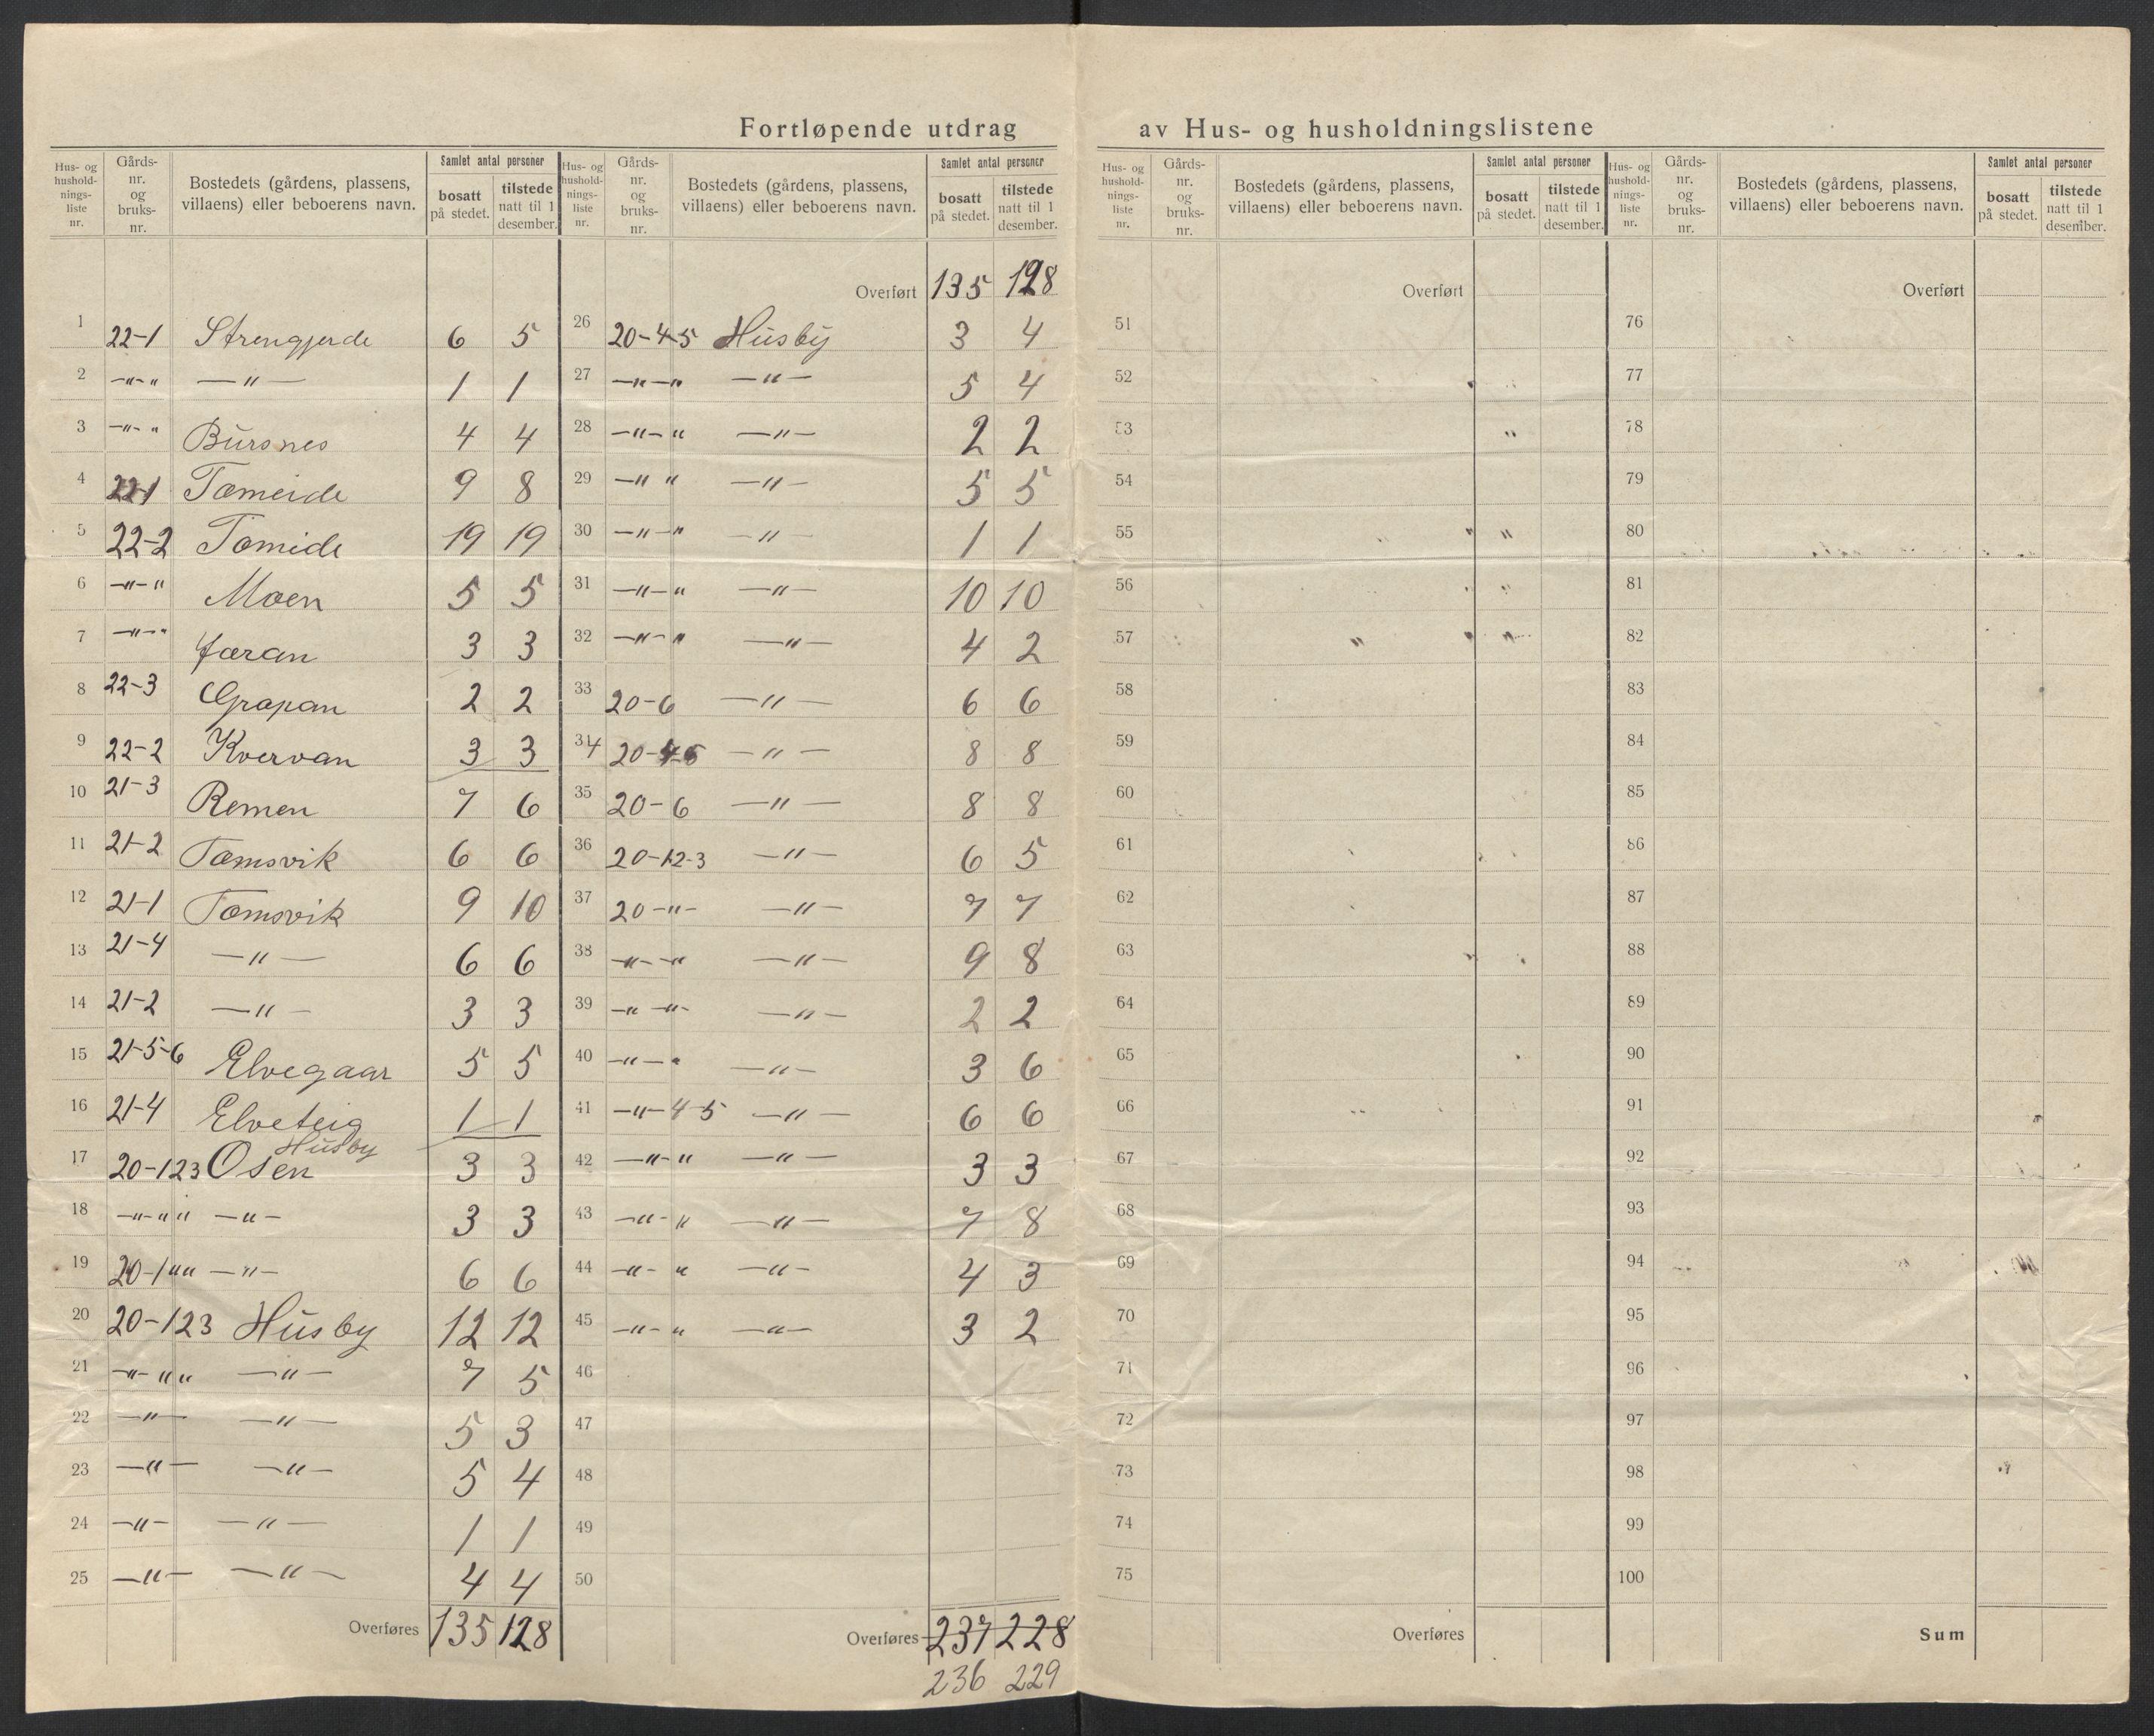 Fortløpende utdrag av Hus- og husholdningslistene
Hus- og hushold- nings- liste nr. | Gårds- nr. og bruks- nr. | Bostedets (gårdens, plassens, villaens) eller beboerens navn. | Samlet antal personer | bosatt på stedet. | tilstede natt til 1 desember.
Hus- og hushold- nings- liste nr. | Gårds- nr. og bruks- nr. | Bostedets (gårdens, plassens, villaens) eller beboerens navn. | Samlet antal personer | bosatt på stedet. | tilstede natt til 1 desember.
1 22-1 Strengjerde 6 5
2 -"-" -"- 1 1
3 -"-" Bursnes 4 4
4 22-1 Tømeide 9 8
5 22-2 Tømide 19 19
6 -"-" Moen 5 5
7 -"-" Jaran 3 3
8 22-3 Grapan 2 2
9 22-2 Kvervan 3 3
10 21-3 Remen 7 6
11 21-2 Tømsvik 6 6
12 21-1 Tømsvik 9 10
13 21-4 -"- 6 6
14 21-2 -"- 3 3
15 21-5-6 Elvegaar 5 5
16 21-4 Elveteig 1 1
Husby
17 20-123 Osen 3 3
18 -"-"" -"- 3 3
19 20-1"" -"- 6 6
20 20-123 Husby 12 12
21 -"-"" -"- 7 5
22 -"- -"- 5 3
23 -"- -"- 5 4
24 -"- -"- 1 1
25 -"- -"- 4 4
Overføres 135 128
Overført 135 128
26 20-4-5 Husby 3 4
27 -"-" -"- 5 4
28 -"-" -"- 2 2
29 -"" -"- 5 5
30 -"-" -"- 1 1
31 -"-" -"- 10 10
32 -"-" -"- 4 2
33 20-6 -"- 6 6
34 20-4-5 -"- 8 8
35 20-6 -"- 8 8
36 20-1-2-3 -"- 6 5
37 20-"- -"- 7 7
38 -"-" -"- 9 8
39 -"-"- -"- 2 2
40 -"-" -"- 3 6
41 -"-4-5 -"- 6 6
42 -"-" -"- 3 3
43 -"-" -"- 7 8
44 -"-" -"- 4 3
45 -"-" -"- 3 2
46
47
48
49
50
Overføres 237 228
236 229
Hus- og hushold- nings- liste nr. | Gårds- nr. og bruks- nr. | Bostedets (gårdens, plassens, villaens) eller beboerens navn. | Samlet antal personer | bosatt på stedet. | tilstede natt til 1 desember.
Overført
51
52
53
54
55
56
57
58
59
60
61
62
63
64
65
66
67
68
69
70
71
72
73
74
75
Overføres
Hus- og hushold- nings- liste nr. | Gårds- nr. og bruks- nr. | Bostedets (gårdens, plassens, villaens) eller beboerens navn. | Samlet antal personer | bosatt på stedet. | tilstede natt til 1 desember.
Overført
76
77
78
79
80
81
82
83
84
85
86
87
88
89
90
91
92
93
94
95
96
97
98
99
100
Sum